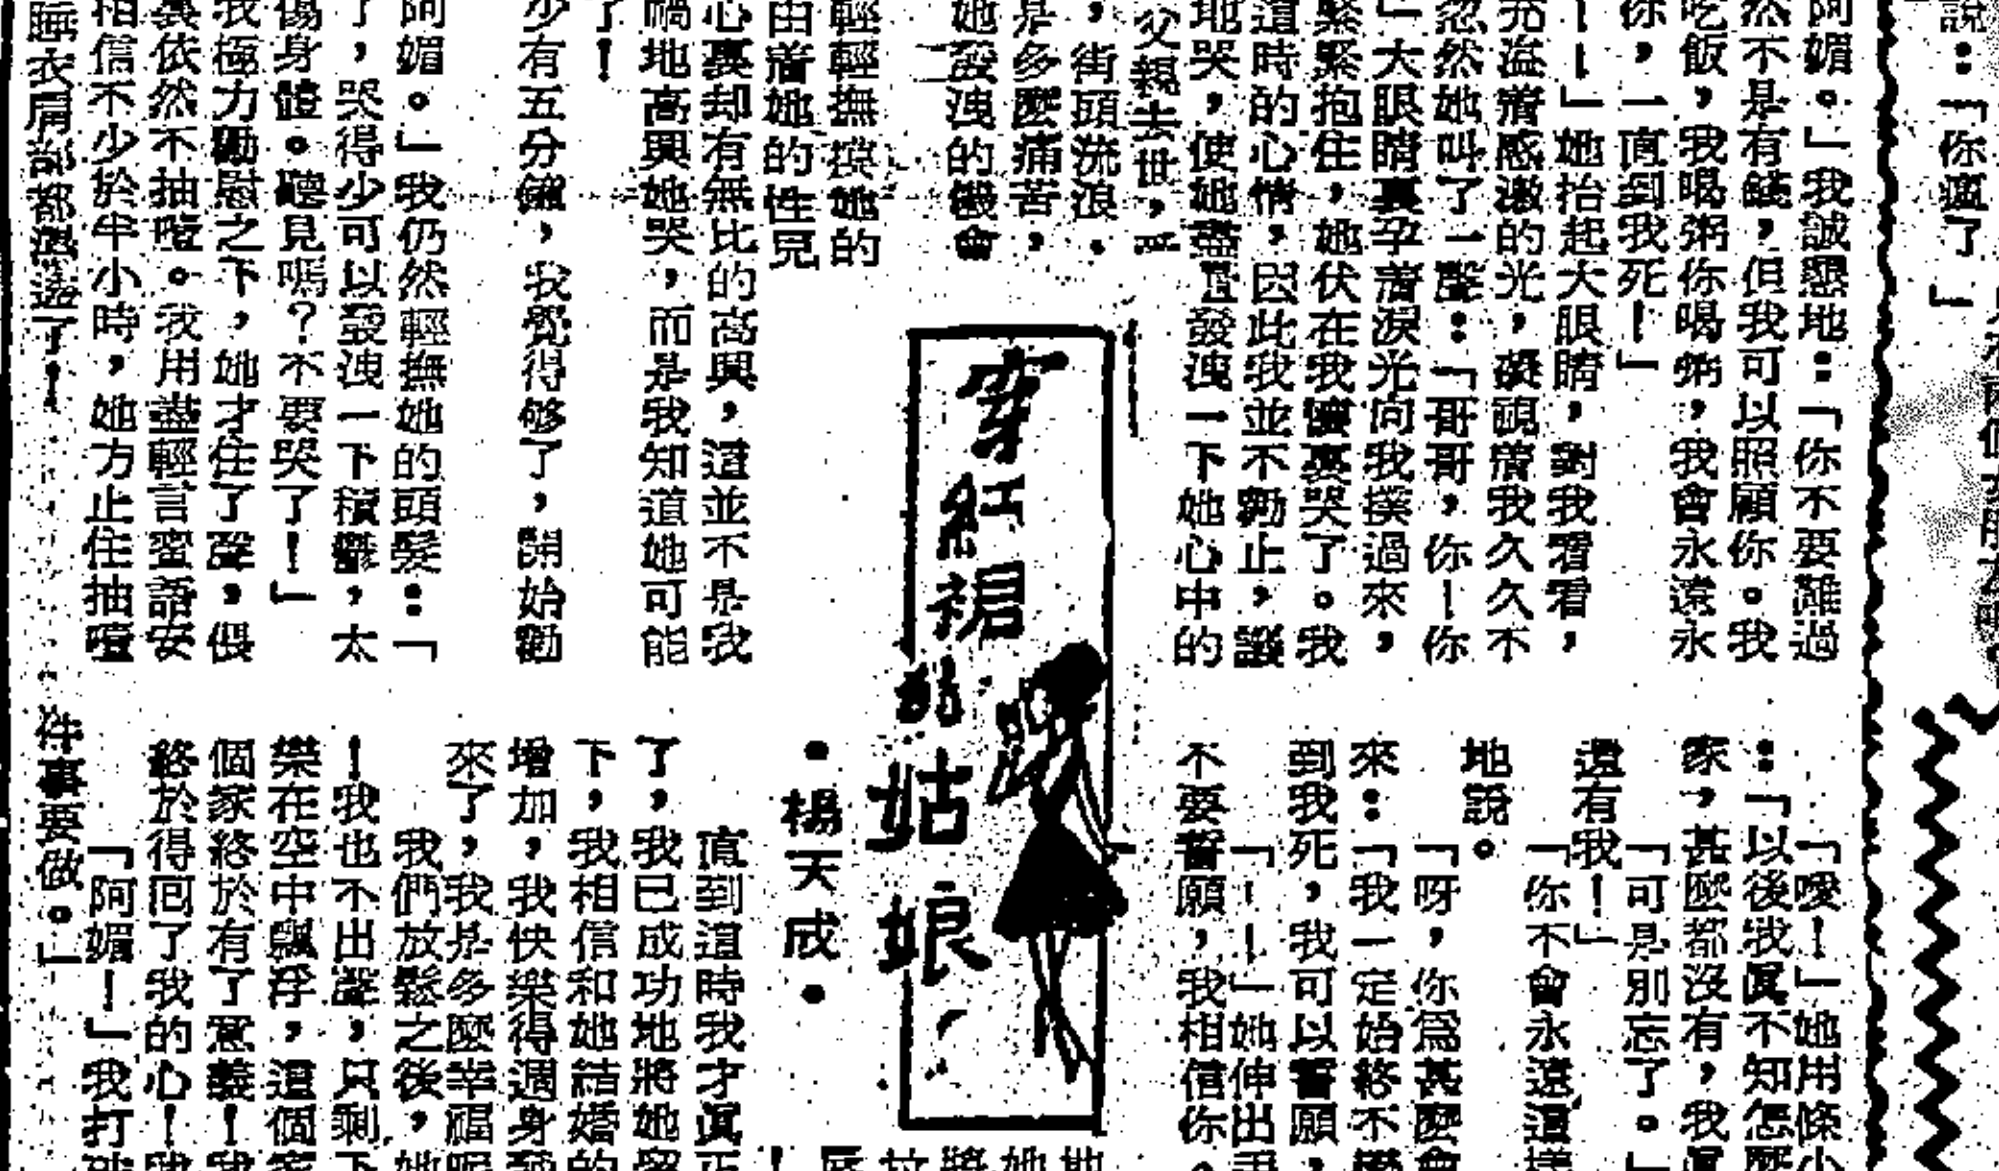 說：「你瘋了
阿媚。」我誠懇地：「你不要難過
然不是有錢，但我可以照顧你。我
吃飯，我喝粥你喝粥，我會永遠永
你，一直到我死！」
——」她抬起大眼睛，對我看看，
充溢着感激的光，凝視着我久久不
忽然她叫了一聲：「哥哥，你！你
」大眼睛裏孕着淚光向我撲過來，
緊緊抱住，她伏在我懷裏哭了。我
這時的心情，因此我並不勸止，讓
地哭，使她盡量發洩一下她心中的
父親去世，
，街頭流浪，
是多麼痛苦，
她發洩的機會
穿紅裙的姑娘
•楊天成•
輕輕撫摸她的
由着她的性兒
心裏却有無比的高興，這並不是我
禍地高興她哭，而是我知道她可能
了！
少有五分鐘，我覺得够了，開始勸
阿媚。」我仍然輕撫她的頭髮：「
了，哭得少可以發洩一下積鬱，太
傷身體。聽見嗎？不要哭了！」
我極力勸慰之下，她才住了聲，但
裏依然不抽噎。我用盡輕言蜜語安
相信不少於半小時，她方止住抽噎
睡衣肩部都濕透了！
「噯！」她用條小
：「以後我眞不知怎麼
家，甚麼都沒有，我眞
「可是別忘了。」
還有我！」
「你不會永遠這樣
地說。
「呀，你爲甚麼會
來：「我一定始終不變
到我死，我可以誓願，
「——」她伸出手
不要誓願，我相信你。
直到這時我才眞正
了，我已成功地將她留
下，我相信和她結婚的
增加，我快樂得週身發
來了，我是多麼幸福呢
我們放鬆之後，她
！我也不出聲，只剩下
樂在空中飄浮，這個家
個家終於有了意義！我
終於得回了我的心！
「阿媚！」我打破
件事要做。」